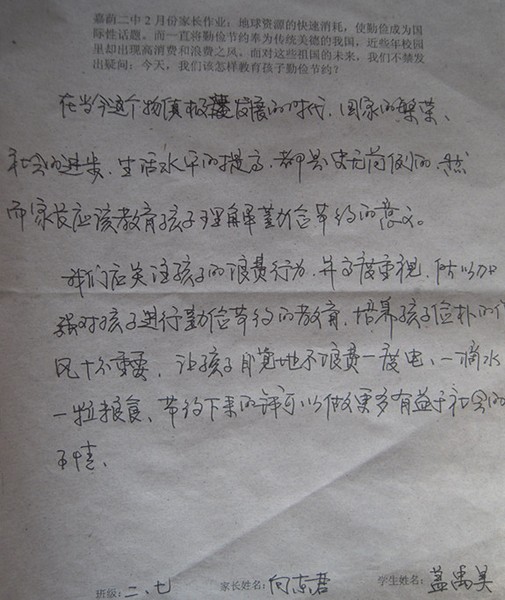 嘉荫二中2月份家长作业：地球资源的快速消耗，使勤俭成为国
际性话题。而一直将勤俭节约奉为传统美德的我国，近些年校园
里却出现高消费和浪费之风，面对这些祖国的未来，我们不禁发
出疑问：今天，我们该怎样教育孩子勤俭节约？
在当今这个物质极度发展的时代，国家的繁荣、
社会的进步、生活水平的提高，都是史无前例的，然
而家长应该教育孩子理解勤俭节约的意义。
我们应关注孩子的浪费行为，并高度重视，所以加
强对孩子进行勤俭节约的教育，培养孩子俭朴的作
风十分重要，让孩子自觉地不浪费一度电、一滴水
一粒粮食，节约下来的 可以做更多有益于社会的
事情。
班级：二、七 家长姓名：向东君 学生姓名：盖禹昊